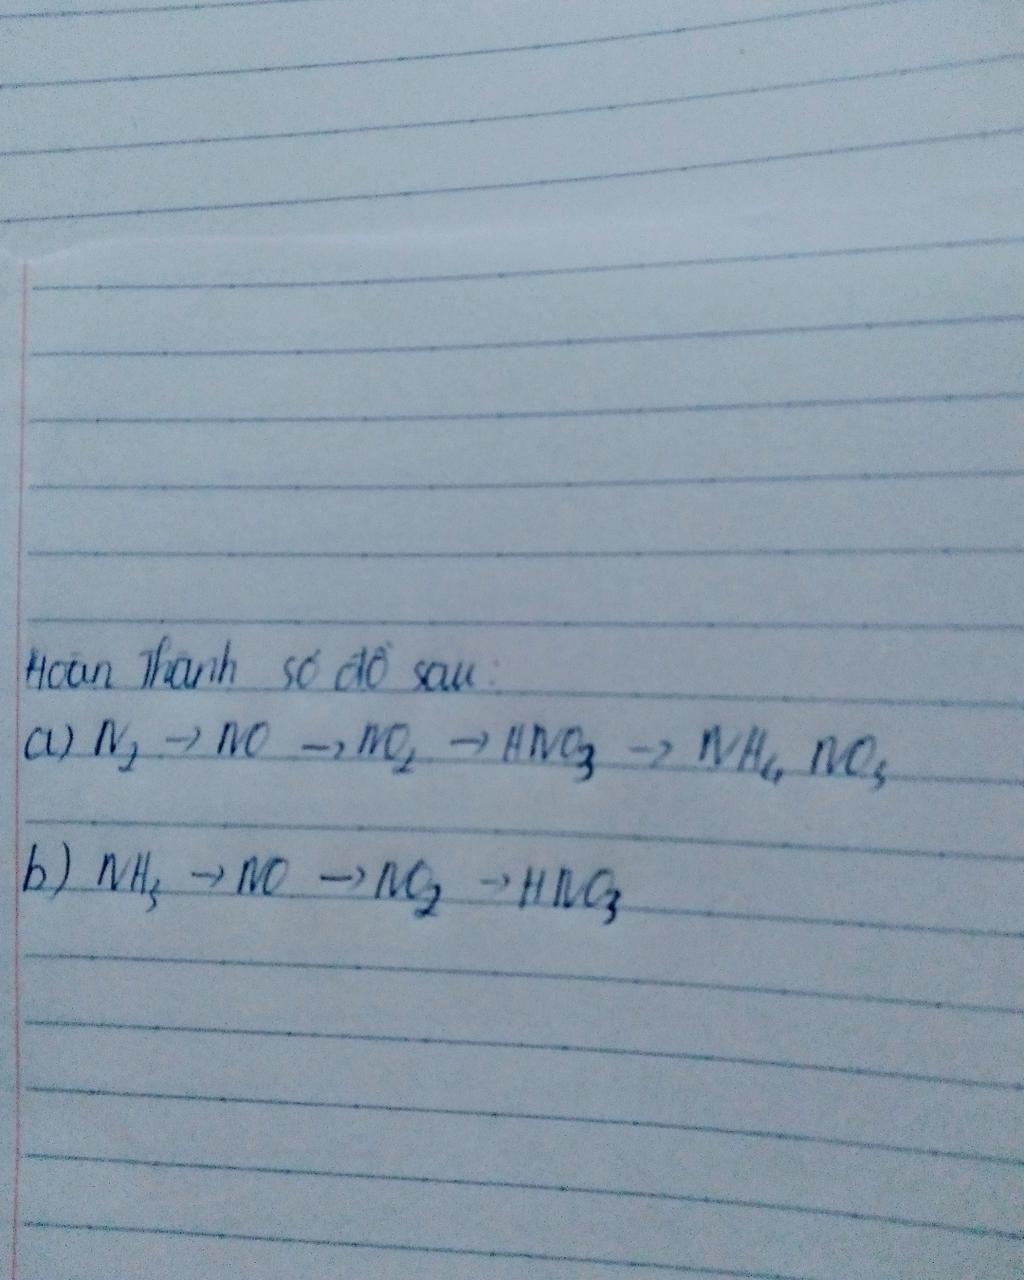 Hoàn Thành sơ đồ sau:
a) N₂ → NO → NO₂ → HNO₃ → NH₄ NO₃
b) NH₃ → NO → NO₂ → HNO₃